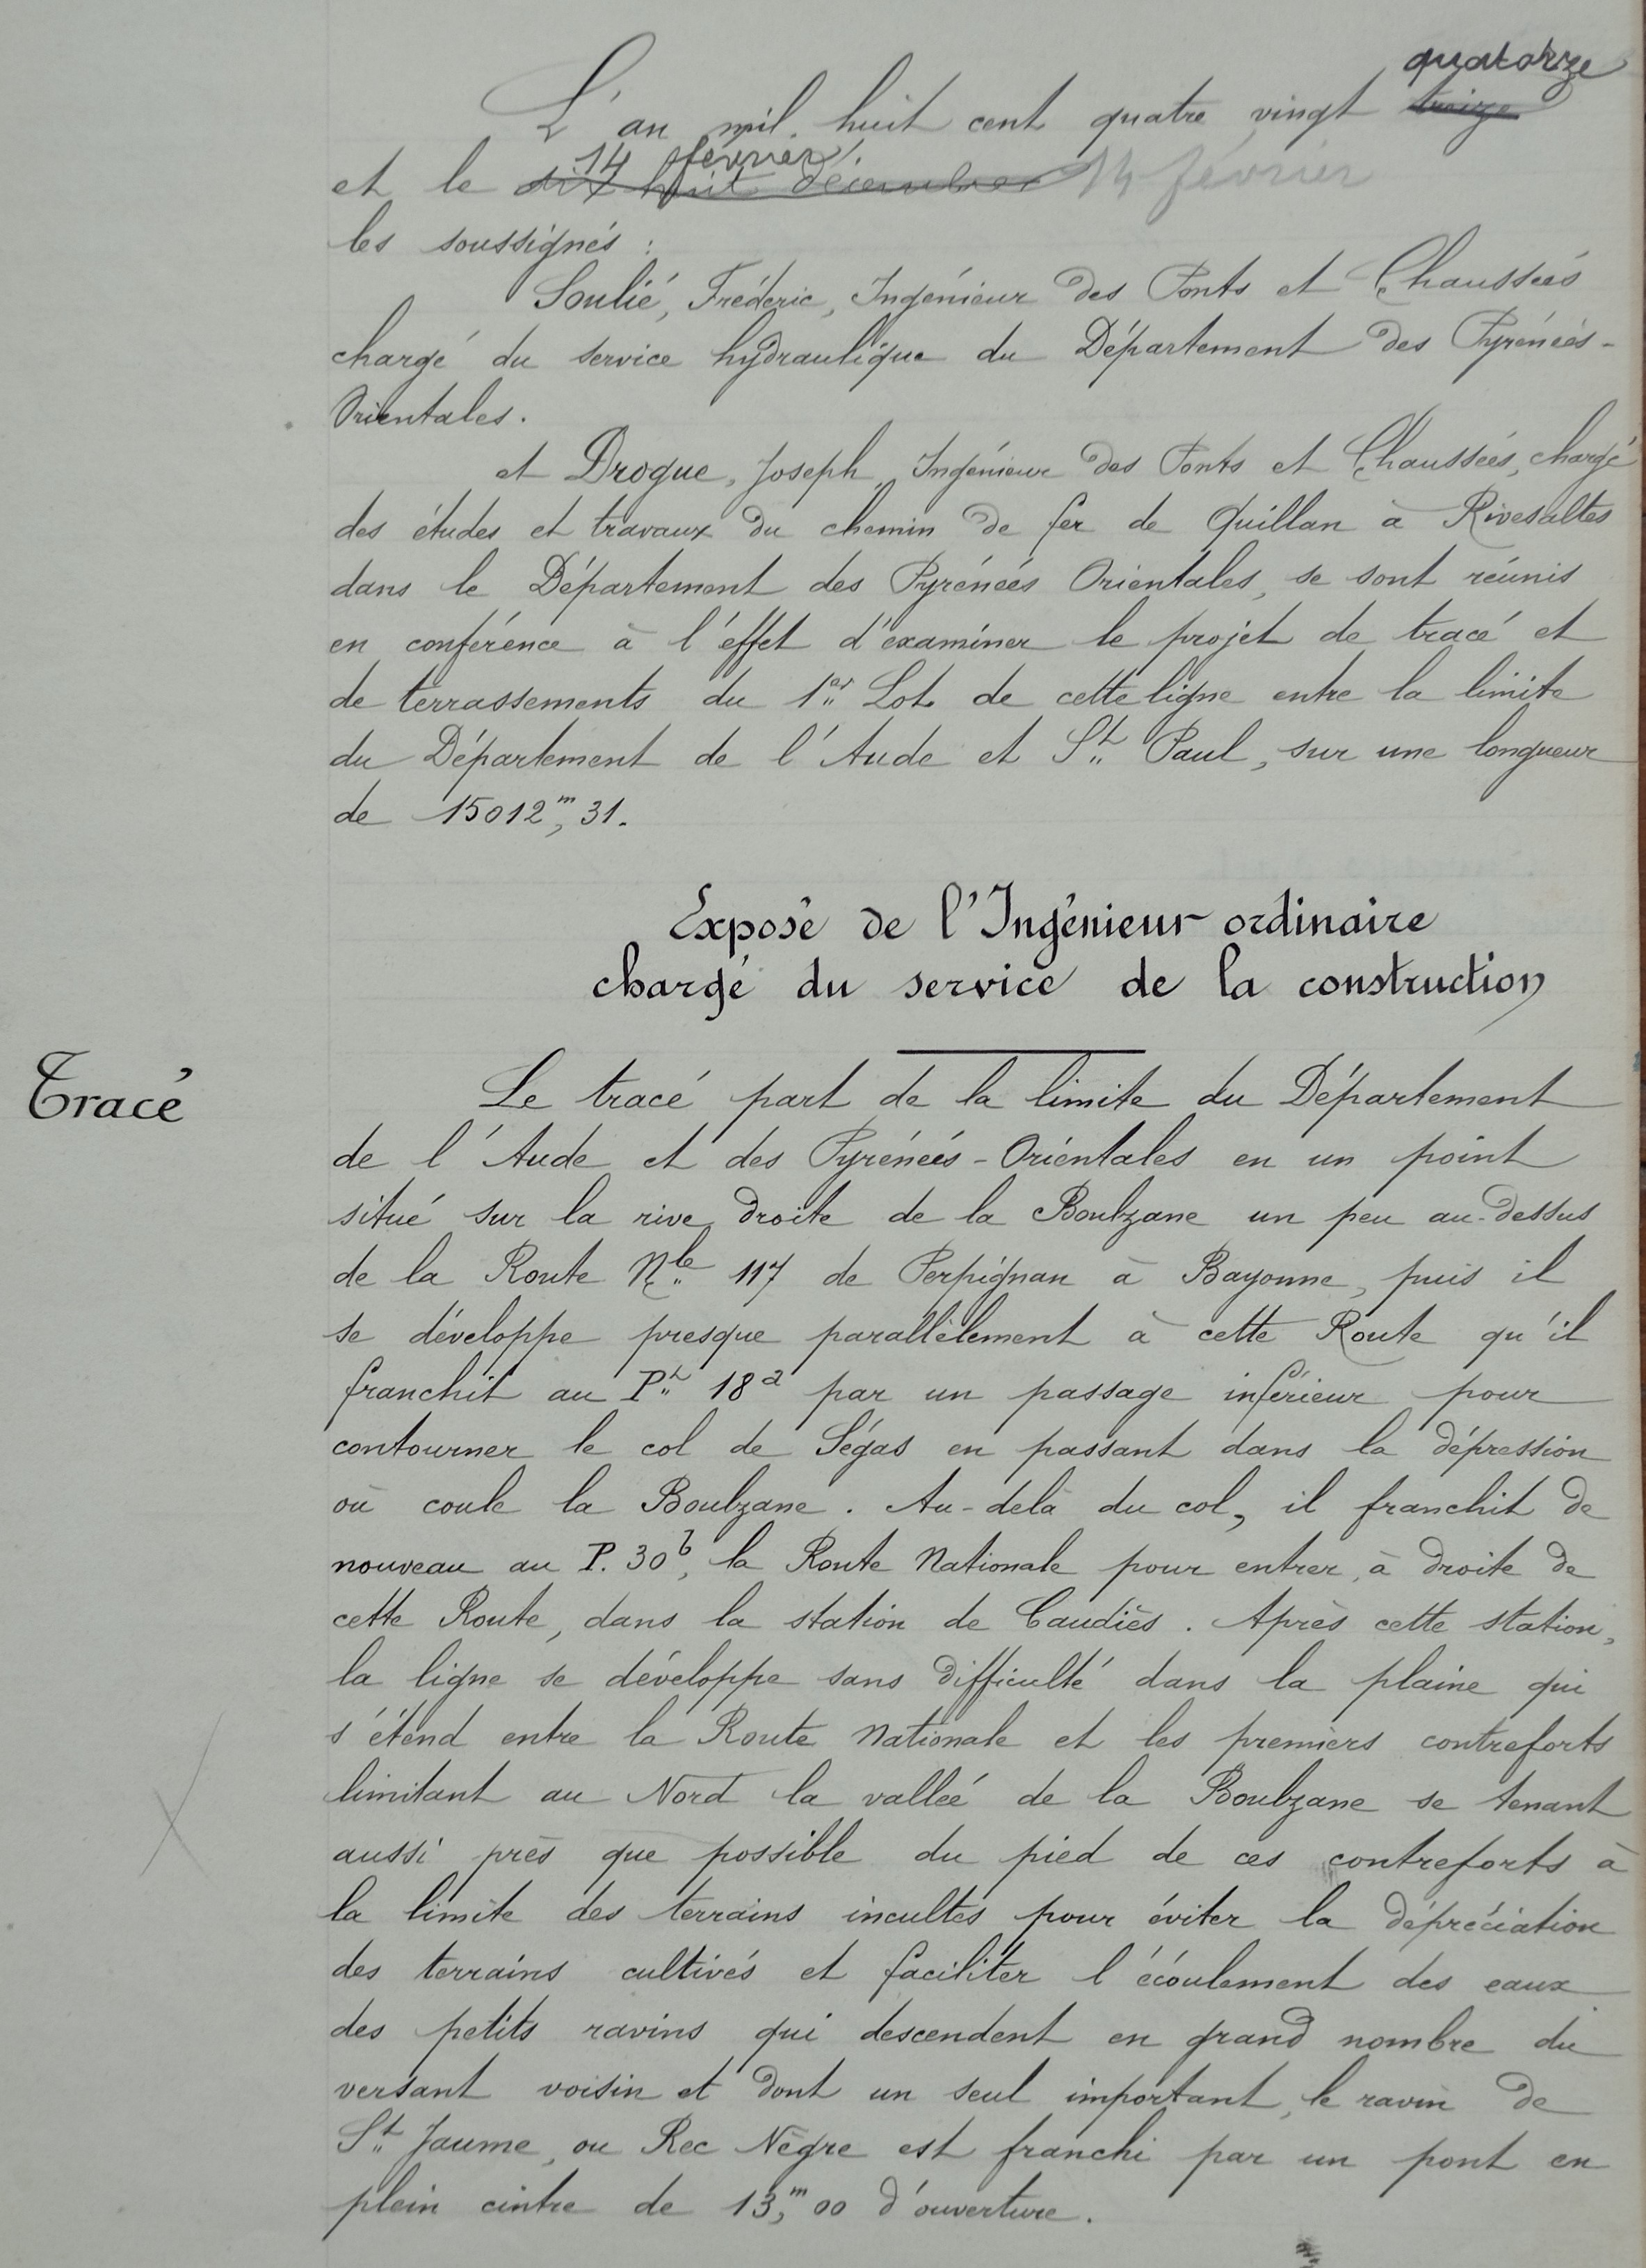 L'an mil huit cent quatre vingt treize quatorze
et le dix huit décembre 14 février 14 février
les soussignés :
Soulié, Fréderic, Ingénieur des Ponts et Chaussées
chargé du service hydraulique du Département des Pyrénées-
Orientales.
et Drogue, Joseph, Ingénieur des Ponts et Chaussées, chargé
des études et travaux du chemin de fer de Quillan à Rivesaltes
dans le Département des Pyrénées Orientales, se sont réunis
en conférence à l'effet d'examiner le projet de tracé et
de terrassements du 1er Lot de cette ligne entre la limite
du Département de l'Aude et St Paul, sur une longueur
de 15012m,31.
Exposé de l'Ingénieur ordinaire
chargé du service de la construction
Tracé
Le tracé part de la limite du Département
de l'Aude et des Pyrénées-Orientales en un point
situé sur la rive droite de la Boulzane un peu au-dessus
de la Route Nle 117 de Perpignan à Bayonne, puis il
se développe presque parallèlement à cette Route qu'il
franchit au Pt 18a par un passage inférieur pour
contourner le col de Ségas en passant dans la dépression
où coule la Boulzane. Au-delà du col, il franchit de
nouveau au P. 30b, la Route Nationale pour entrer, à droite de
cette Route, dans la station de Caudiès. Après cette station,
la ligne se développe sans difficulté dans la plaine qui
s'étend entre la Route Nationale et les premiers contreforts
limitant au Nord la vallée de la Boulzane se tenant
aussi près que possible du pied de ces contreforts à
la limite des terrains incultes pour éviter la dépréciation
des terrains cultivés et faciliter l'écoulement des eaux
des petits ravins qui descendent en grand nombre du
versant voisin et dont un seul important, le ravin de
St Jaume, ou Rec Nègre est franchi par un pont en
plein cintre de 13m,00 d'ouverture.